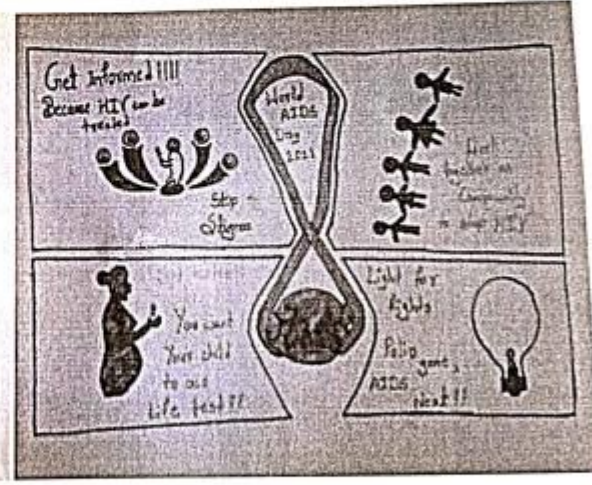 Get Informed !!!!
Because HIV can be
treated
Stop
Stigma
World
AIDS
Day
2011
Work
together as
Community
to stop HIV
You want
Your child
to
Life test !!
Light for
Rights
Polio
gone,
AIDS
Next !!